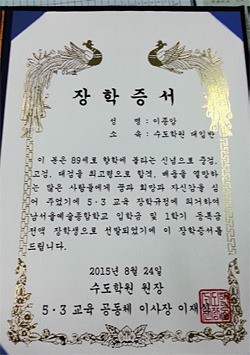 장학증서
성 명 : 이종앙
소 속 : 수도학원 대입반
이 분은 89세로 향학에 불타는 신념으로 중검,
고검, 대검을 최고령으로 합격, 배움을 열망하
는 많은 사람들에게 꿈과 희망과 자신감을 심
어 주었기에 5·3 교육 장학규정에 의거하여
남서울예술종합학교 입학금 및 1학기 등록금
전액 장학생으로 선발되었기에 이 장학증서를
드립니다.
2015년 8월 24일
수도학원 원장
5·3 교육 공동체 이사장 이재